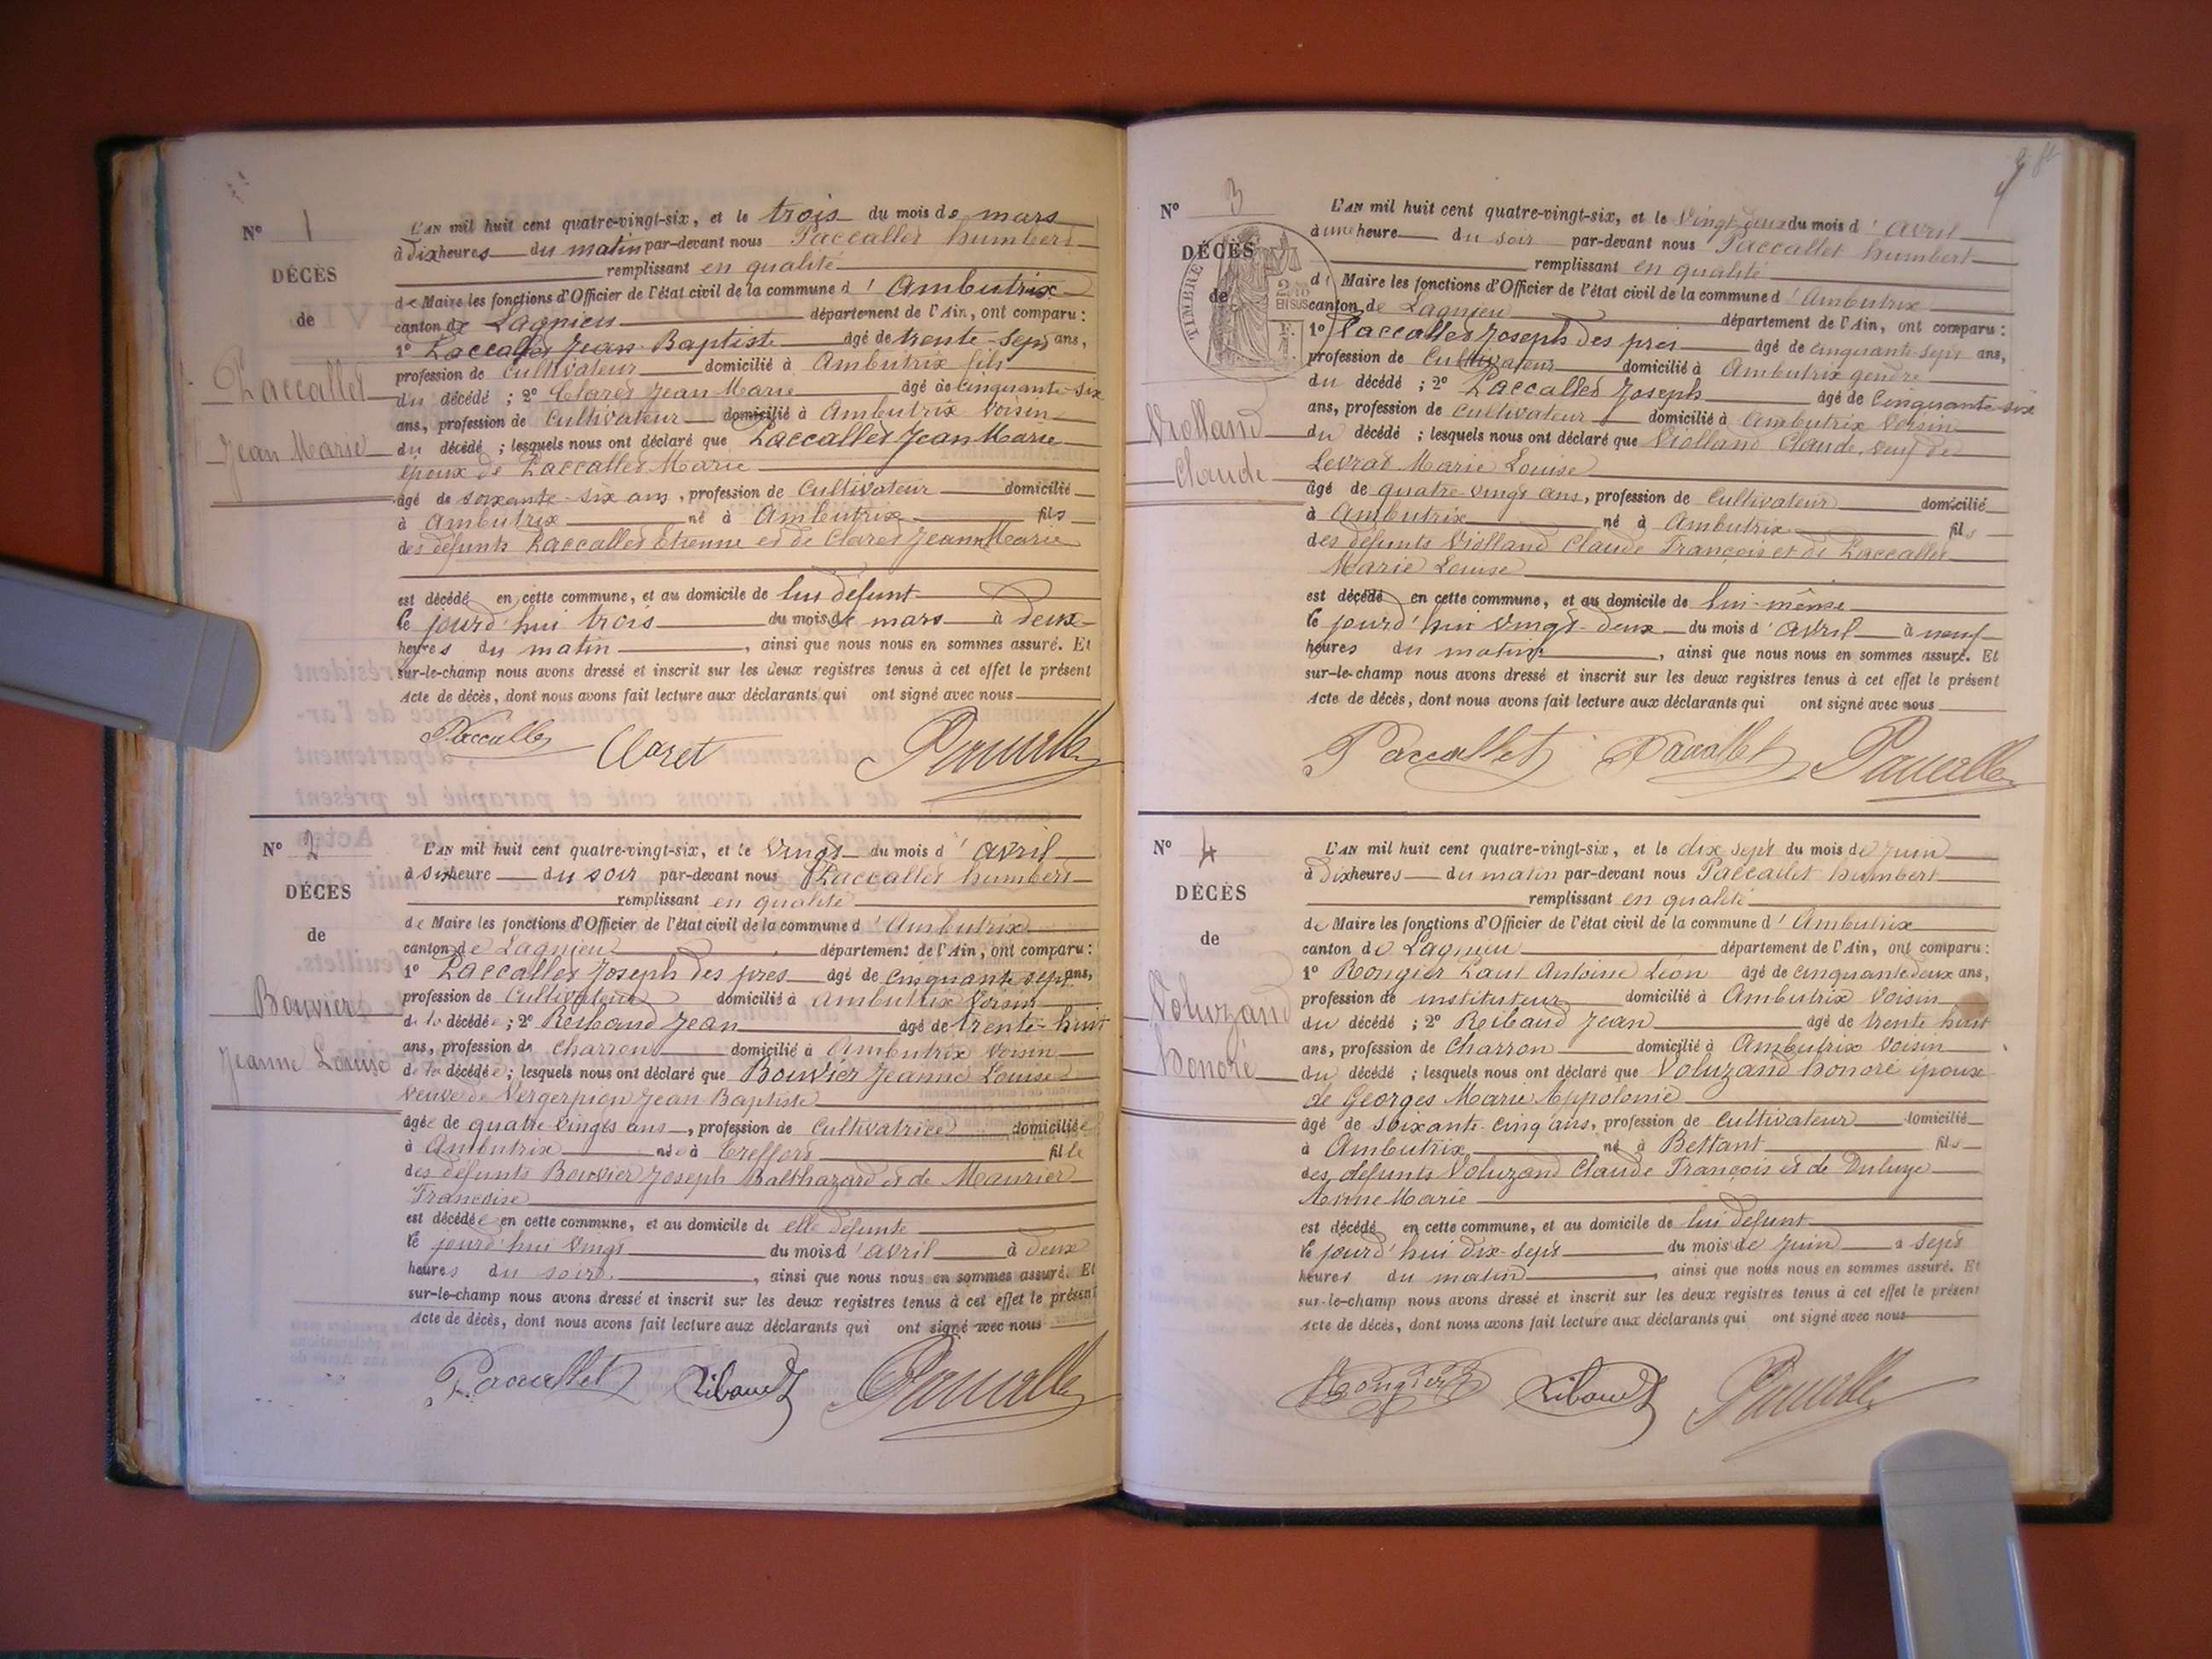 N° 1
DÉCÈS
de
Paccallet
Jean Marie
L'AN mil huit cent quatre-vingt-six, et le trois du mois de mars
à dix heures du matin par-devant nous Paccallet humbert
remplissant en qualité
de Maire les fonctions d'Officier de l'état civil de la commune d'Ambutrix
canton de Lagnieu département de l'Ain, ont comparu :
1° Paccallet Jean Baptiste âgé de trente-sept ans,
profession de Cultivateur domicilié à Ambutrix fils
du décédé ; 2° Claret Jean Marie âgé de Cinquante-six
ans, profession de Cultivateur domicilié à Ambutrix Voisin
du décédé ; lesquels nous ont déclaré que Paccallet Jean Marie
époux de Paccallet Marie
âgé de soixante-six ans, profession de Cultivateur domicilié
à Ambutrix né à Ambutrix fils
des défunts Paccallet Etienne et de Claret Jeanne Marie
est décédé en cette commune, et au domicile de lui défunt
le jourd'hui trois du mois de mars à deux
heures du matin, ainsi que nous nous en sommes assuré. Et
sur-le-champ nous avons dressé et inscrit sur les deux registres tenus à cet effet le présent
Acte de décès, dont nous avons fait lecture aux déclarants qui ont signé avec nous
Paccallet Claret Paccallet
N° 2
DÉCÈS
de
Bouvier
Jeanne Louise
L'AN mil huit cent quatre-vingt-six, et le vingt du mois d'avril
à six heure du soir par-devant nous Paccallet humbert
remplissant en qualité
de Maire les fonctions d'Officier de l'état civil de la commune d'Ambutrix
canton de Lagnieu département de l'Ain, ont comparu :
1° Paccallet Joseph des pres âgé de Cinquante sept ans,
profession de Cultivateur domicilié à Ambutrix Voisin
de la décédée ; 2° Reibaud Jean âgé de trente-huit
ans, profession de Charron domicilié à Ambutrix Voisin
de la décédée ; lesquels nous ont déclaré que Bouvier Jeanne Louise
veuve de Vergerpion Jean Baptiste
âgée de quatre vingts ans, profession de Cultivatrice domiciliée
à Ambutrix née à Treffort fille
des défunts Bouvier Joseph Balthazard et de Maurier
Françoise
est décédée en cette commune, et au domicile de elle défunte
le jourd'hui vingt du mois d'avril à deux
heures du soir, ainsi que nous nous en sommes assuré. Et
sur-le-champ nous avons dressé et inscrit sur les deux registres tenus à cet effet le présent
Acte de décès, dont nous avons fait lecture aux déclarants qui ont signé avec nous
Paccallet Ribaud Paccallet
N° 3
DÉCÈS
de
TIMBRE
Violland
Claude
L'AN mil huit cent quatre-vingt-six, et le Vingt deux du mois d'avril
à une heure du soir par-devant nous Paccallet humbert
remplissant en qualité
de Maire les fonctions d'Officier de l'état civil de la commune d'Ambutrix
canton de Lagnieu département de l'Ain, ont comparu :
1° Paccallet Joseph des pres âgé de Cinquante-sept ans,
profession de Cultivateur domicilié à Ambutrix gendre
du décédé ; 2° Paccallet Joseph âgé de Cinquante-six
ans, profession de Cultivateur domicilié à Ambutrix Voisin
du décédé ; lesquels nous ont déclaré que Violland Claude, veuf de
Levrat Marie Louise
âgé de quatre-vingt ans, profession de Cultivateur domicilié
à Ambutrix né à Ambutrix fils
des défunts Violland Claude François et de Paccallet
Marie Louise
est décédé en cette commune, et au domicile de lui-même
le jourd'hui vingt-deux du mois d'avril à neuf
heures du matin, ainsi que nous nous en sommes assuré. Et
sur-le-champ nous avons dressé et inscrit sur les deux registres tenus à cet effet le présent
Acte de décès, dont nous avons fait lecture aux déclarants qui ont signé avec nous
Paccallet Paccallet Paccallet
N° 4
DÉCÈS
de
Voluzand
honoré
L'AN mil huit cent quatre-vingt-six, et le dix sept du mois de Juin
à Dix heures du matin par-devant nous Paccallet humbert
remplissant en qualité
de Maire les fonctions d'Officier de l'état civil de la commune d'Ambutrix
canton de Lagnieu département de l'Ain, ont comparu :
1° Rougier Paul Antoine Léon âgé de cinquante deux ans,
profession de instituteur domicilié à Ambutrix Voisin
du décédé ; 2° Reibaud Jean âgé de trente huit
ans, profession de Charron domicilié à Ambutrix Voisin
du décédé ; lesquels nous ont déclaré que Voluzand honoré époux
de Georges Marie Appolonie
âgé de soixante-cinq ans, profession de Cultivateur domicilié
à Ambutrix né à Bettant fils
des défunts Voluzand Claude François et de Duluye
Anne Marie
est décédé en cette commune, et au domicile de lui défunt
le jourd'hui dix-sept du mois de Juin à sept
heures du matin, ainsi que nous nous en sommes assuré. Et
sur-le-champ nous avons dressé et inscrit sur les deux registres tenus à cet effet le présent
Acte de décès, dont nous avons fait lecture aux déclarants qui ont signé avec nous
Rougier Ribaud Paccallet